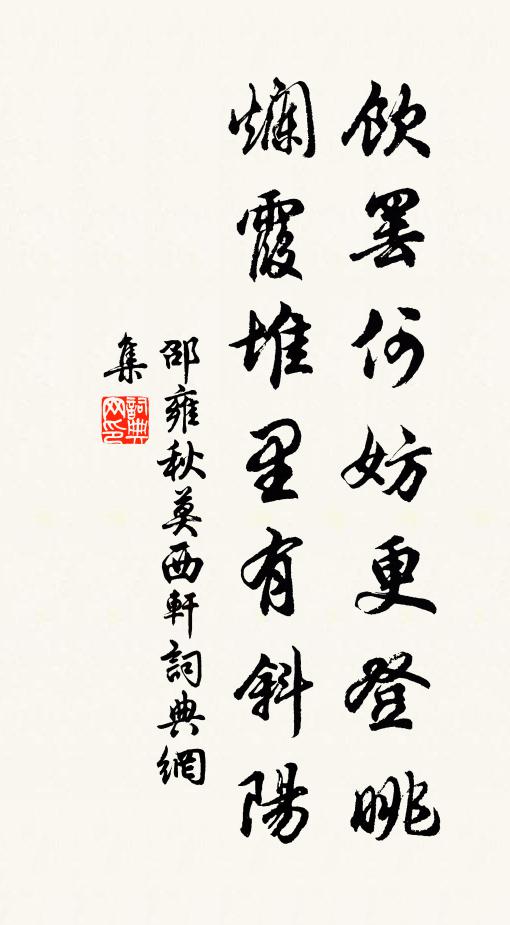 飲罷何妨更登眺
爛霞堆里有斜陽
邵雍秋莫西軒詞典網
集
詞典
网印